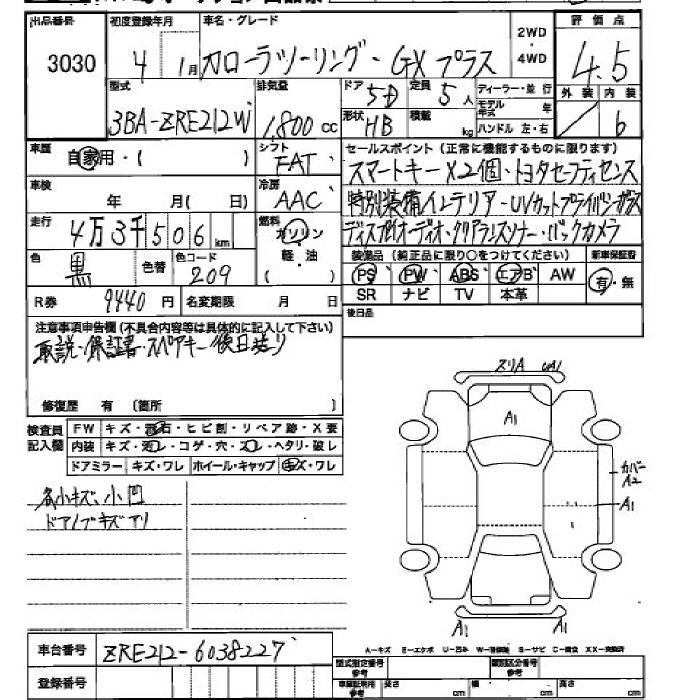 出品番号 初度登録年月 車名・グレード 2WD・4WD 評価点
3030 4年 1月 カローラツーリング・GXプラス 4.5
型式 排気量 ドア 5D 定員 5人 ディーラー・並行 外装 内装
3BA-ZRE212W 1800cc 形状 HB 積載 kg モデル年式 年 6
ハンドル 左・右
車歴 自家用・( ) シフト FAT セールスポイント(正常に機能するものに限ります)
車検 年 月(日) 冷房 AAC スマートキー×2個・トヨタセーフティセンス
特別装備インテリア・UVカットプライバシーガラス
走行 4万3千506km 燃料 ガソリン・軽油・( ) ディスプレイオーディオ・クリアランスソナー・バックカメラ
色 黒 色替 色コード 209 装備品(純正品に限り○をつけてください) 新車保証書
PS PW ABS エアB AW 有・無
R券 9440円 名変期限 月 日 SR ナビ TV 本革
後日品
注意事項申告欄(不具合内容等は具体的に記入して下さい)
取説・保証書・スペアキー後日送り
修復歴 有 〔箇所
検査員記入欄 FW キズ・飛石・ヒビ割・リペア跡・X要
内装 キズ・汚レ・コゲ・穴・スレ・ヘタリ・破レ
ドアミラー キズ・ワレ ホイール・キャップ キズ・ワレ
各小キズ、小凹
ドアノブキズアリ
スリA
A1
カバー
A2
A1
A1 A1
A-キズ E-エクボ U-凹み S-サビ C-腐食 XX-交換済
車台番号 ZRE212-6038227
型式指定番号 参考 類別区分番号 参考
登録番号
長さ cm 幅 cm 高さ cm